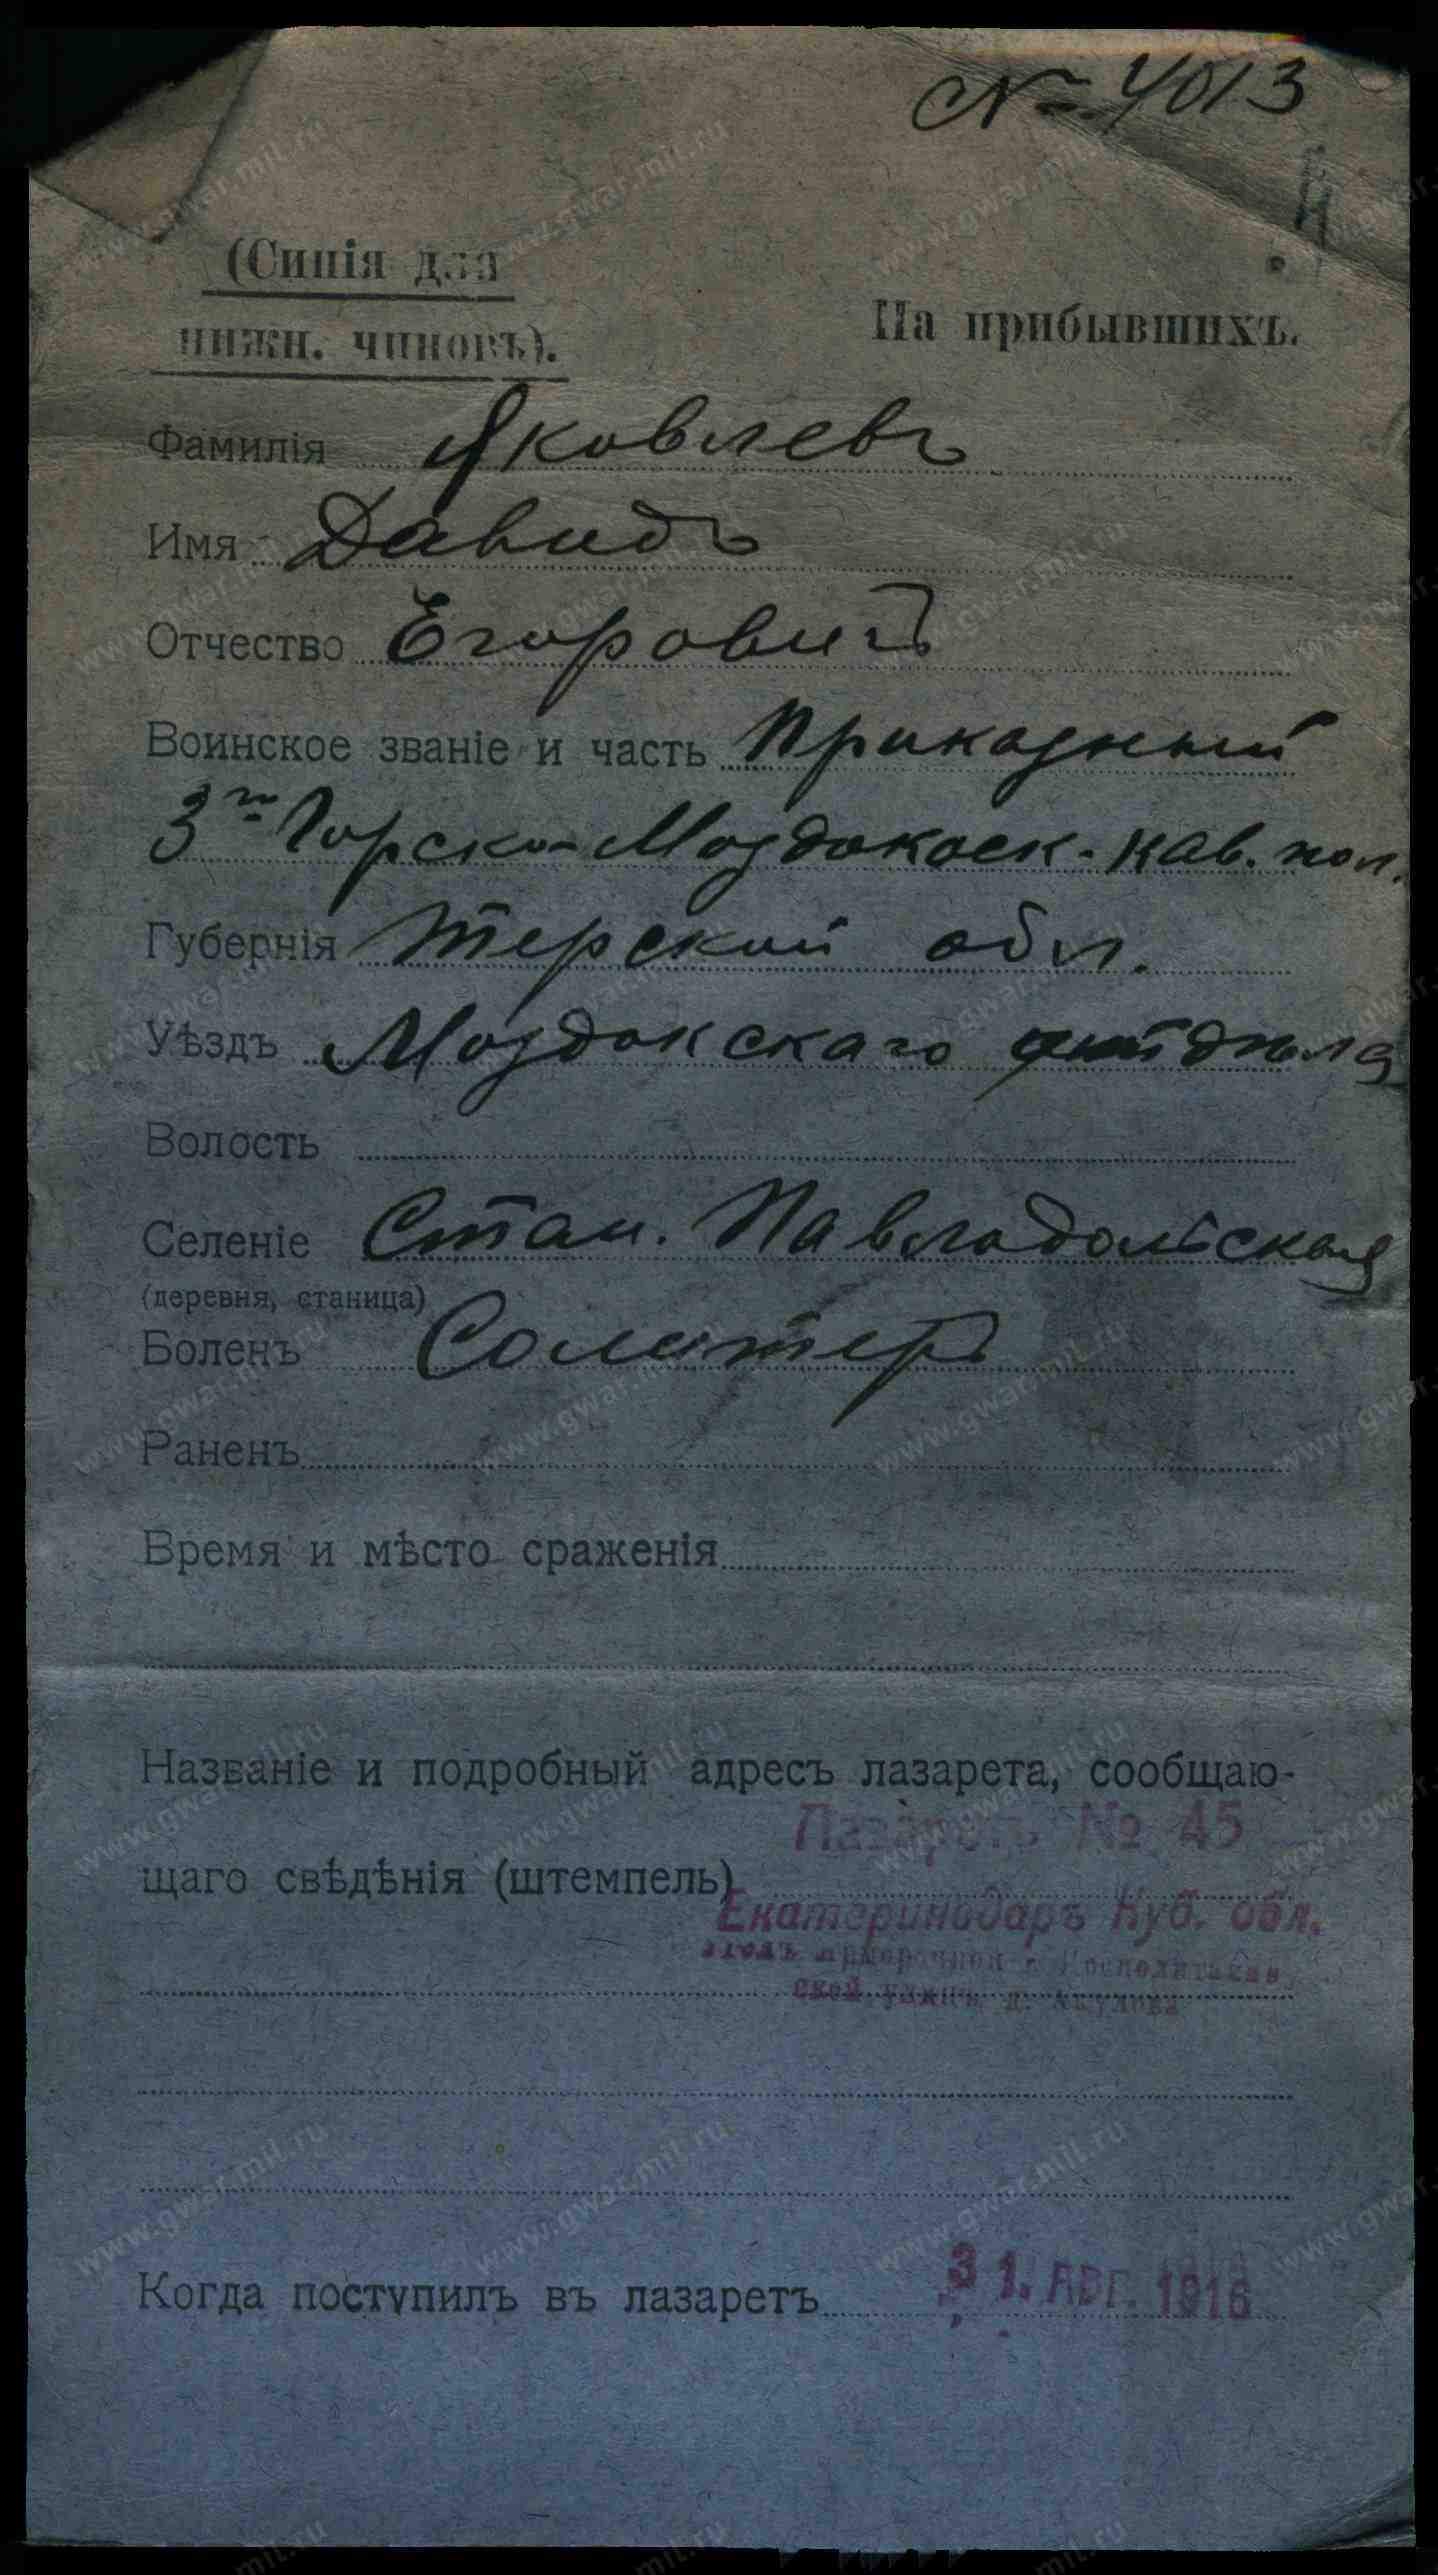 № 4013
(Синія для
нижн. чиновъ).
На прибывшихъ.
Фамилія Яковлевъ
Имя Давидъ
Отчество Егоровичъ
Воинское званіе и часть Приказный
3го Горско-Моздокск. кав. пол.
Губернія Терской обл.
Уѣздъ Моздокскаго отдѣла
Волость
Селеніе Стан. Павлодольская
(деревня, станица)
Боленъ Солитер
Раненъ
Время и мѣсто сраженія
Названіе и подробный адресъ лазарета, сообщаю-
Лазаретъ № 45
щаго свѣдѣнія (штемпель)
Екатеринодаръ Куб. обл.
ской улицъ д. Акулова
Когда поступилъ въ лазаретъ 31. АВГ. 1916
www.gwar.mil.ru